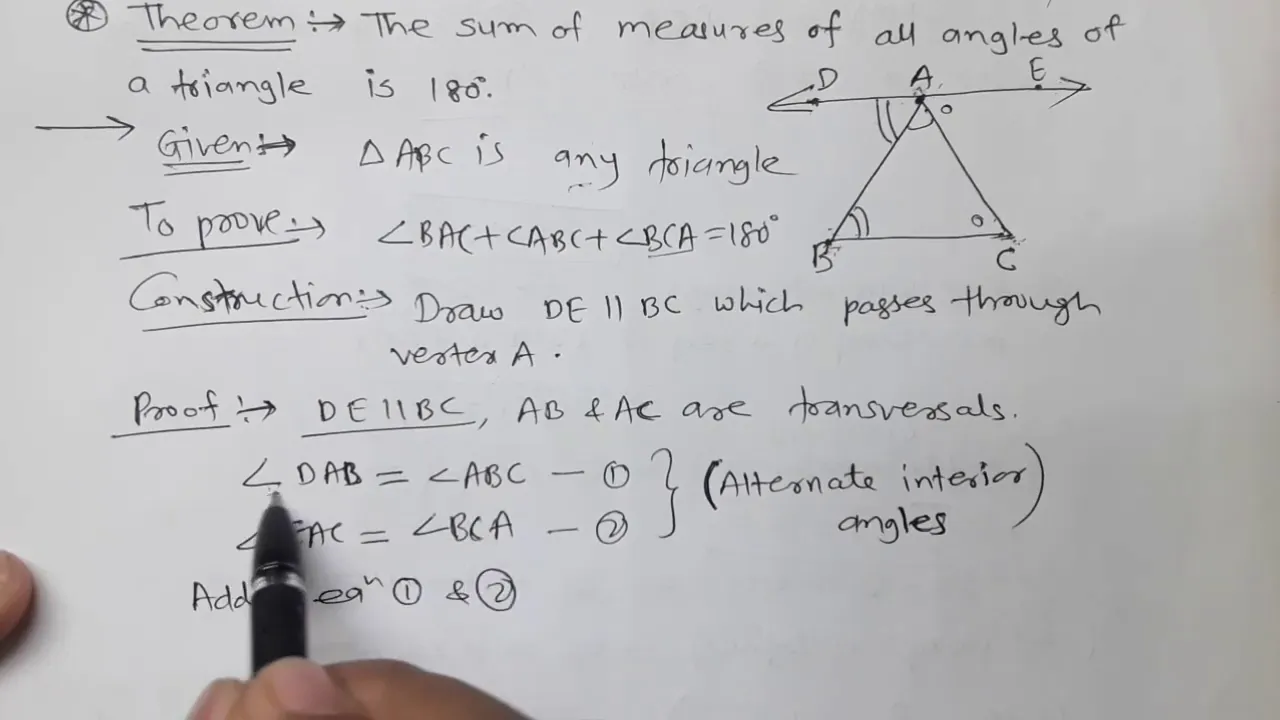 Theorem :→ The sum of measures of all angles of
a triangle is 180°.
Given :→ △ABC is any triangle
To prove :→ ∠BAC + ∠ABC + ∠BCA = 180°
Construction :→ Draw DE || BC which passes through
vertex A.
Proof :→ DE || BC, AB & AC are transversals.
∠DAB = ∠ABC — ①
∠EAC = ∠BCA — ②
(Alternate interior
angles)
Add eqⁿ ① & ②
D A E
B C